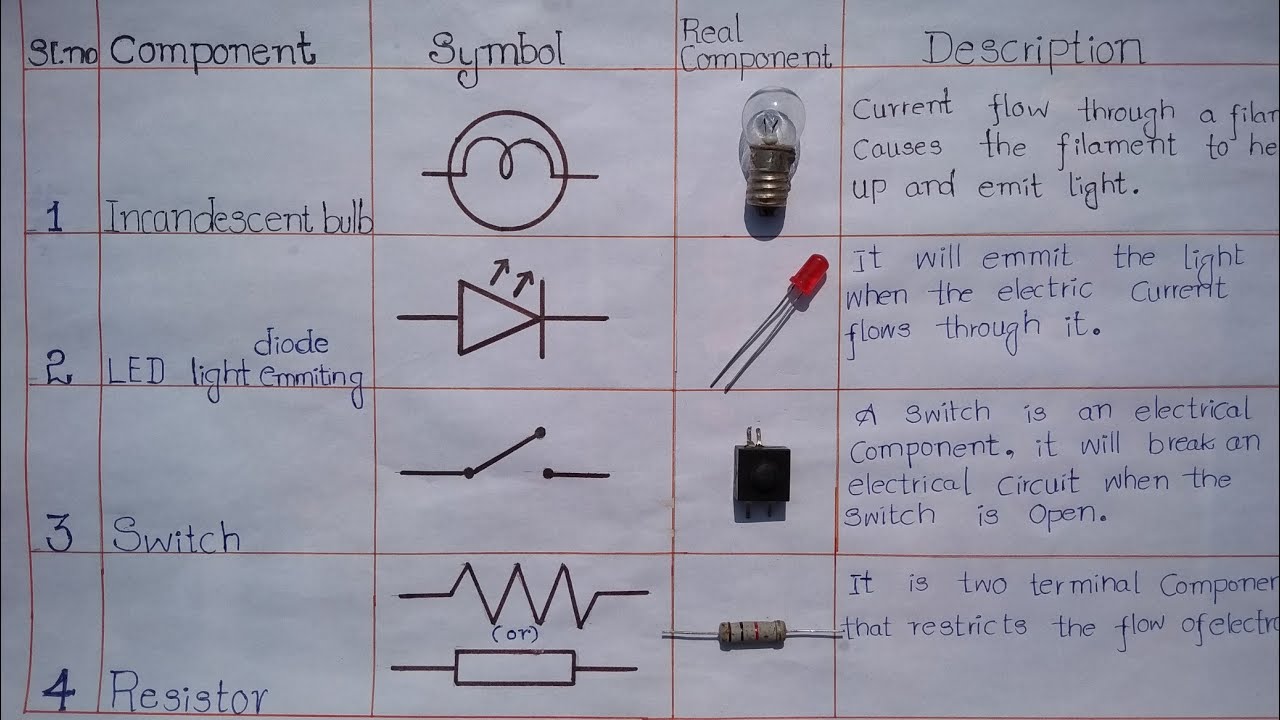 Sl.no Component Symbol Real Component Description
1 Incandescent bulb
Current flow through a
causes the filament to
up and emit light.
2 LED light emmiting diode
It will emmit the light
when the electric current
flows through it.
3 Switch
A switch is an electrical
component, it will break an
electrical circuit when the
switch is open.
4 Resistor
(or)
It is two terminal
that restricts the flow of